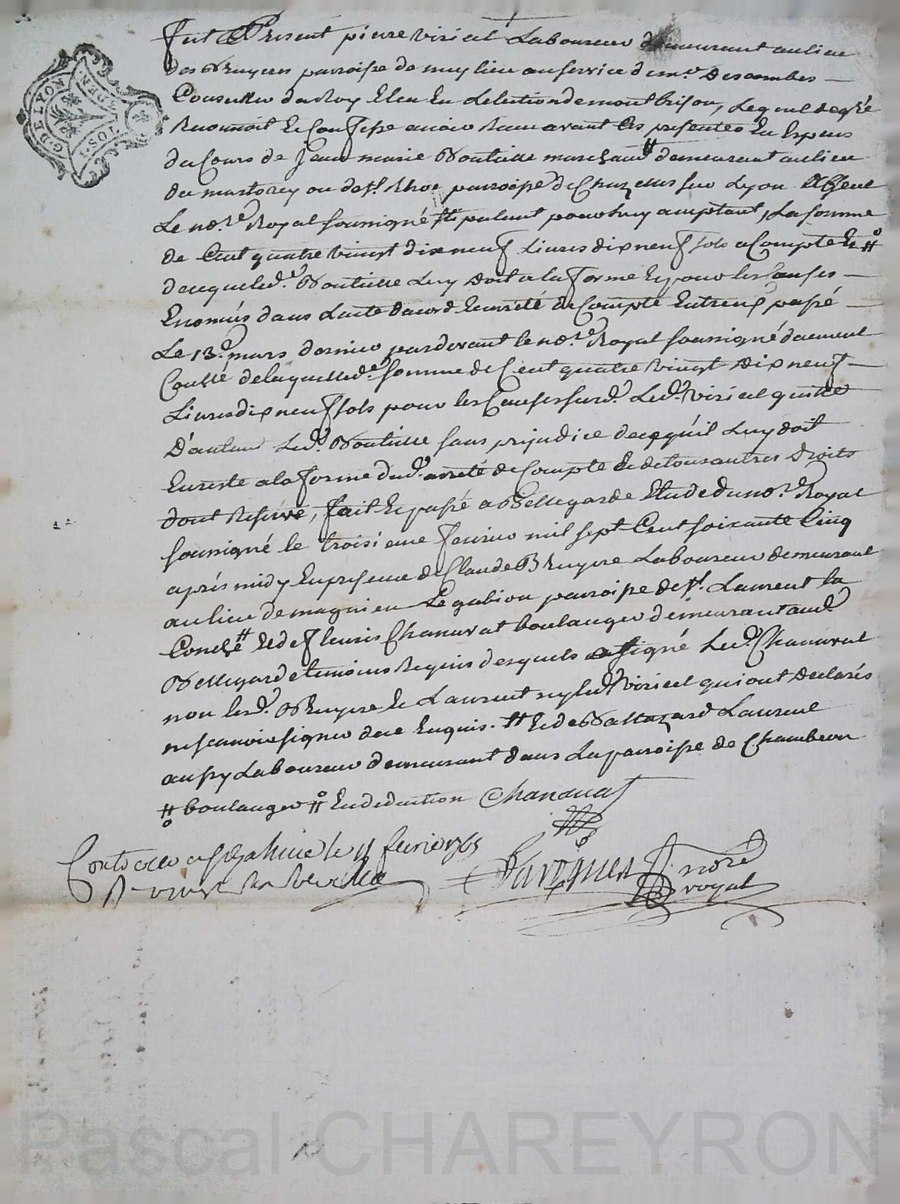 G. DE LYON
TOST. DEN.
Fut Present pierre virical Laboureur demeurant au lieu
des Bruyeres parroisse de meylieu au service de mr. Descombes
Conseiller du Roy Eleu En Lelection de montbrison, Lequel de gré
Reconnoit Et Confesse avoir Reeu avant Ces presentes En Especes
du Cours de Jean marie Boutiere marchand # demeurant au lieu
du martorey ou de st. Rhoc parroisse de Chazelles sur Lyon absent
Le nore. Royal soussigné stipulant pour luy acceptant, La somme
de Cent quatre vingt dix neuf Livres dix neuf sols a Compte Et #
de ce que led. Boutiere Luy Doit a la forme Et pour les Causes
Enoncés dans Lacte dacord Et arreté de Compte Entreux passé
Le 13e. mars dernier pardevant le nore. Royal soussigné duement
Conllé de laquelle de. somme de Cent quatre vingt Dix neuf
Livres dix neuf sols pour les Causes susd. Led. virical quitte
D'autan Led. Boutiere sans prejudice de ce qu'il Luy doit
En reste a la forme dud. arreté de Compte Et de tous autres Droits
dont Reservé, fait Et passé a Bellegarde Etude du nore. Royal
soussigné le troisieme fevrier mil sept Cent soixante Cinq
aprés midy En presence de Claude Bruyere Laboureur demeurant
au lieu de magnien Le gabion parroisse de st. Laurent la
Conche # Et de fleuris Chanavat boulanger demeurant aud.
Bellegarde temoins Requis desquels a signé Led. Chanavat
non lesd. Bruyere Et Laurent ny led. virical qui ont declarés
ne scavoir signer de ce Enquis. # Et de Baltazard Laurent
aussy Laboureur demeurant dans La parroisse de Chambeon
# boulanger # En deduction Chanavat
Controllé a St Galmier le 11 fevrier 1765
Reçu
nore royal
Pascal CHAREYRON